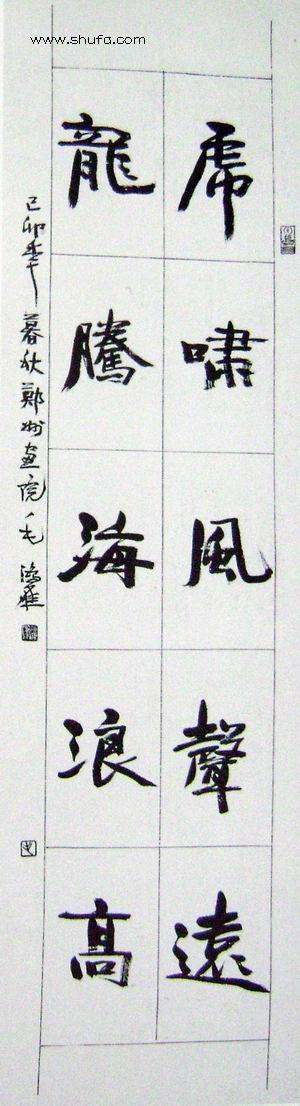 www.shufa.com
虎嘯風聲遠
龍騰海浪高
己卯年暮秋鄭州畫院毛鴻雁